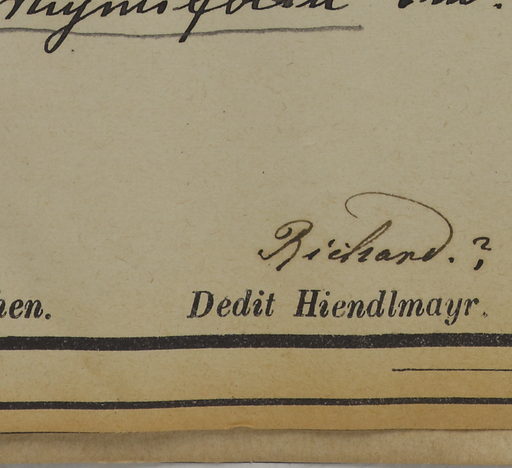 Richard.?
hen. Dedit Hiendlmayr.